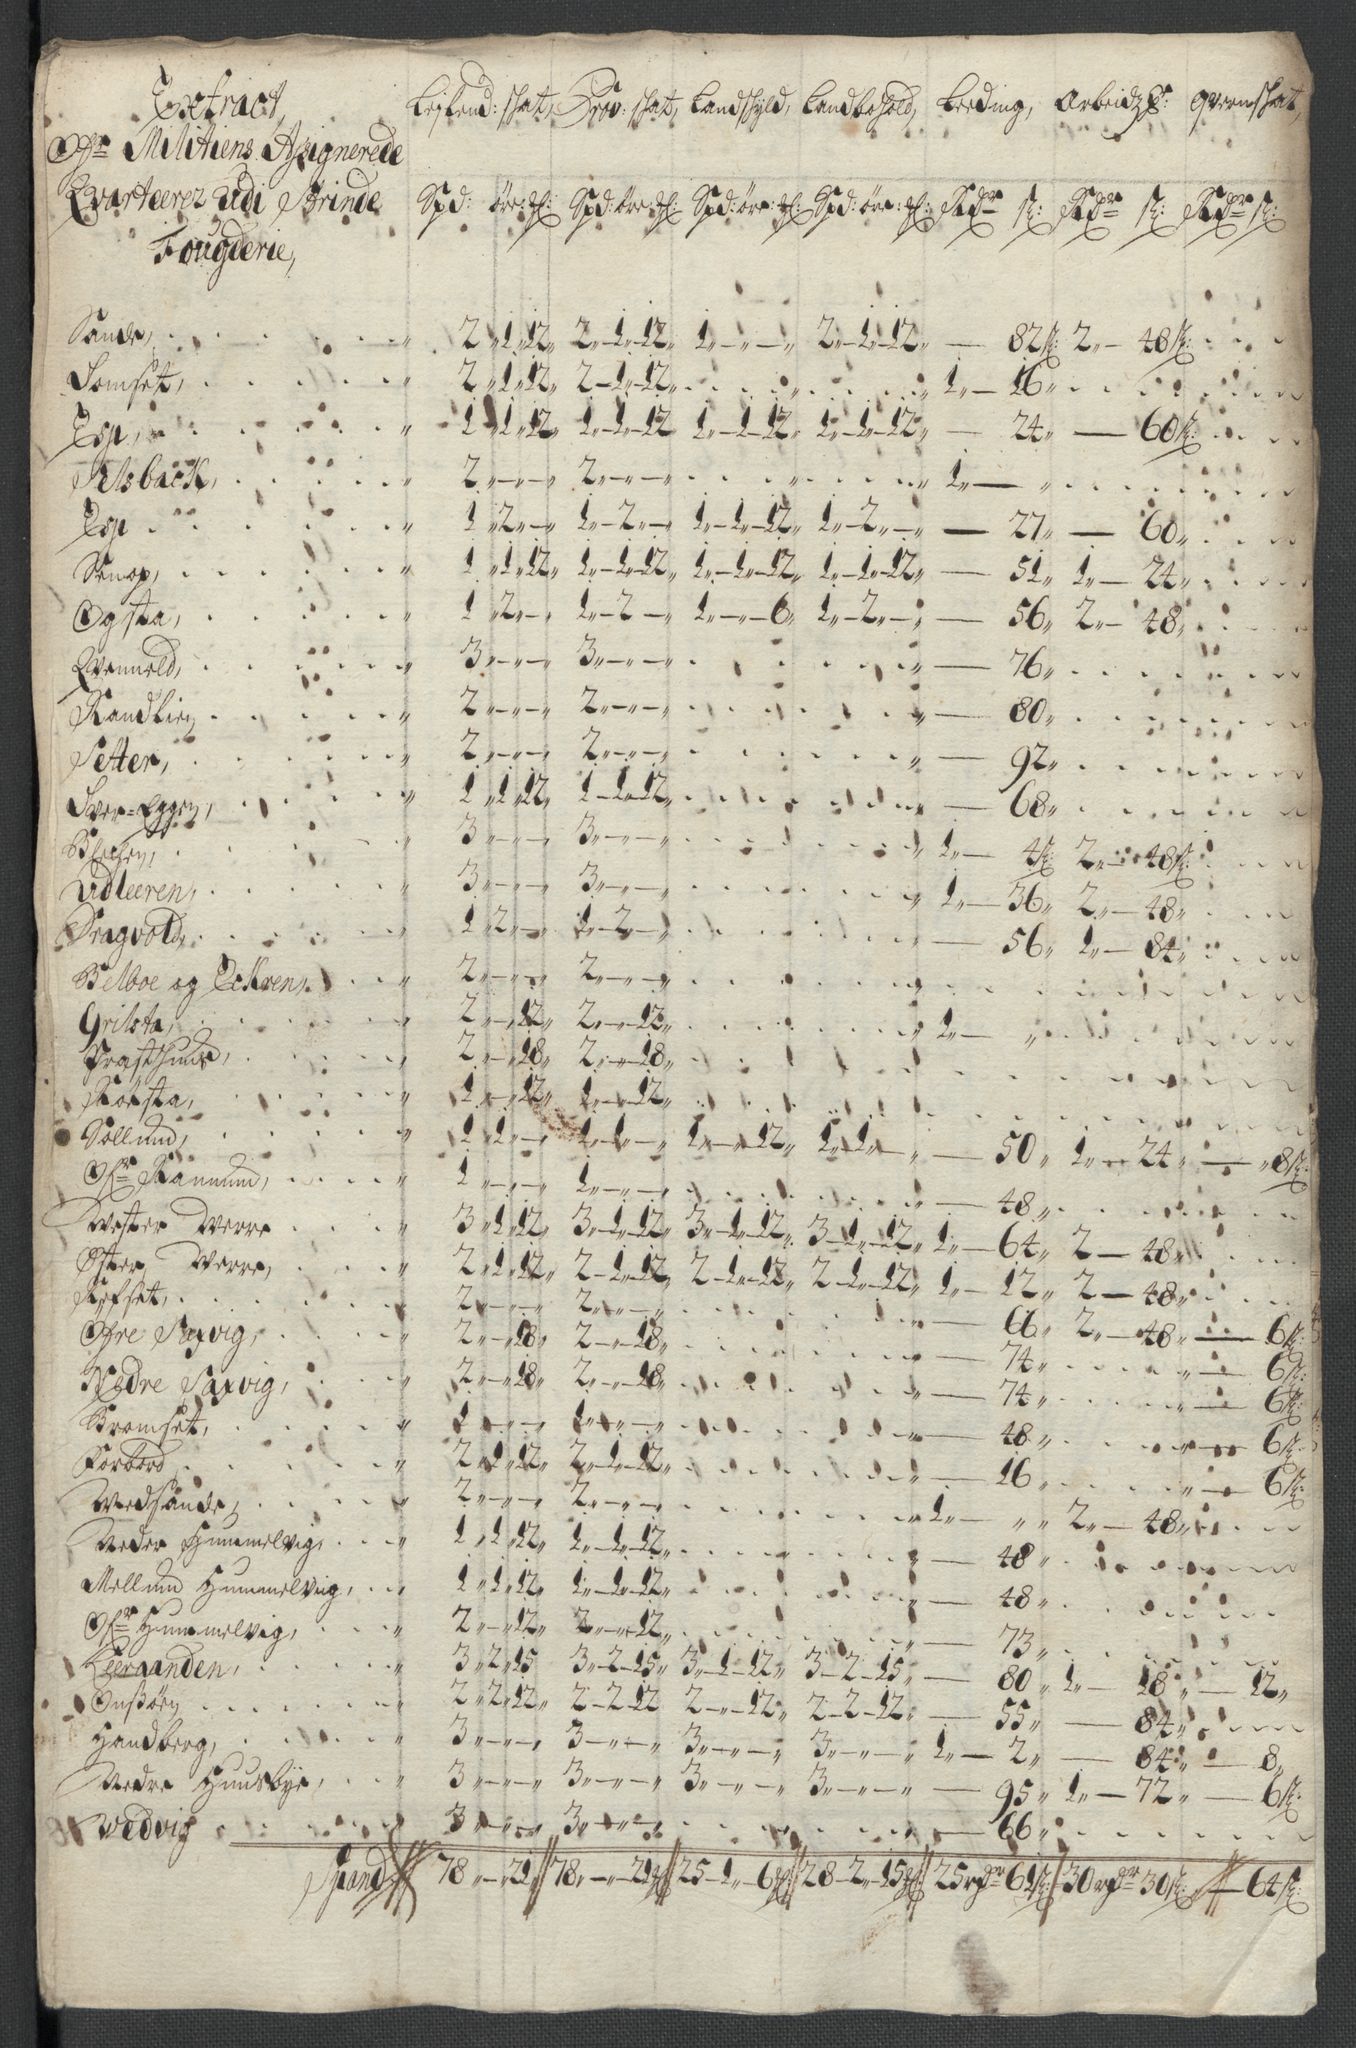 Extract,
Ofr Militiens Assignerede
Qvarteerer Udi Strinde
Fougderie,
Leilend: skat, Prov: skat, Landskyld, Landbohold, Leeding, Arbeidz
Spd: öre: Spd: öre: Spd: öre: Spd: öre: Rdr ß: Rdr ß: Rdr ß:
Sande, 2 1 12 2 1 12 1 2 1 12 82 ß 2 48 ß:
Somset, 2 1 12 2 1 12 1 16
Esp, 1 1 12 1 1 12 1 1 12 1 1 12 24 60 ß:
2 2 1
Esp 1 2 1 2 1 1 12 1 2 27 60
1 1 12 1 1 12 1 1 12 1 1 12 51 1 24
Ogsta, 1 2 1 2 1 6 1 2 56 2 48
3 3 76
2 2 80
Setter, 2 2 92
1 1 12 1 1 12 68
3 3 1 4 ß 2 48 ß:
Udleeren, 3 3 1 36 2 48
Dragvold, 1 2 1 2 56 1 84
Belboe og Eckren, 2 2
Grilsta, 2 12 2 12 1
2 18 2 18
Rörsta, 1 12 1 12
Sollund, 1 1 1 1 1 12 1 1 50 1 24 8 ß:
Ofr Rannum, 1 1 48
Wester Werre 3 1 12 3 1 12 3 1 12 3 1 12 1 64 2 48
Öster Werre, 2 1 12 2 1 12 2 1 12 2 1 12 1 12 2 48
2 2 66 2 48 6 ß:
Ofre Saxvig, 2 18 2 18 74 6 ß:
Nedre Saxvig, 2 18 2 18 74 6 ß:
Bromset, 1 1 48 6 ß:
Forbord, 2 1 12 2 1 12 16 6 ß:
Wedsande, 2 2 1 2 48
Neder Hummelvig, 1 1 12 1 1 12 48
Mellum Hummelvig, 1 1 12 1 1 12 48
Ofr Hummelvig, 2 12 2 12 73
Leeraanden, 3 2 15 3 2 15 3 1 12 3 2 15 80 1 18 12
2 2 12 2 2 12 2 12 2 2 12 55 84
Handberg, 3 3 3 3 1 2 84 8
Nedre Huusbye, 3 3 3 3 95 1 72 6 ß:
Vedvig 3 3 66
Spand 78 21 78 21 25 1 6 28 2 15 25 rdr 61 ß: 30 rdr 30 ß: 64 ß: